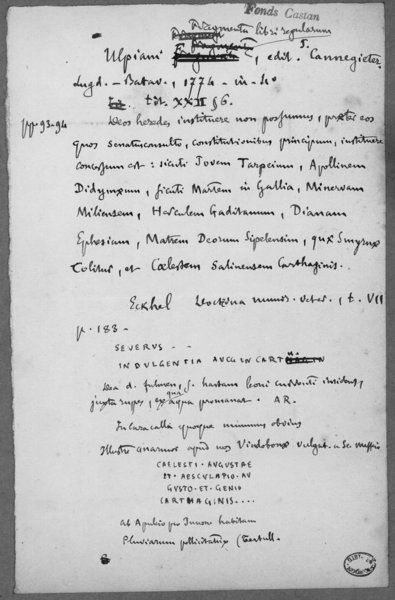 Fonds Castan
Fragmenta libri regularum
Ulpiani, edit. Cannegieter
Lugd. - Batav., 1774 - in-4º
tit. XXII §6.
pp. 93-94
Deos heredes instituere non possumus, præter eos
quos Senatusconsulto, constitutionibus principum, instituere
concessum est : sicuti Jovem Tarpeium, Apollinem
Didymæum, sicuti Martem in Gallia, Minervam
Miliensem, Herculem Gaditanum, Dianam
Ephesiam, Matrem Deorum Sipelensim, quæ Smyrnæ
Colitur, et Cœlestem Salinensem Carthaginis.
Eckhel Doctrina numis. veter., t. VII
p. 183 -
SEVERVS - -
INDVLGENTIA AVGG IN CARTH
Dea d. fulmen, s. hastam leoni currenti insidens,
juxta rupes, ex qua aqua promanat. AR.
In Caracalla quoque nummus obvius
apud nos Vindobonæ
CAELESTI · AVGVSTAE
ET · AESCVLAPIO · AV
GVSTO · ET · GENIO
CARTHAGINIS....
Ab Apuleio pro Junone habitam
Pluviarum pollicitatrix (Tertull.